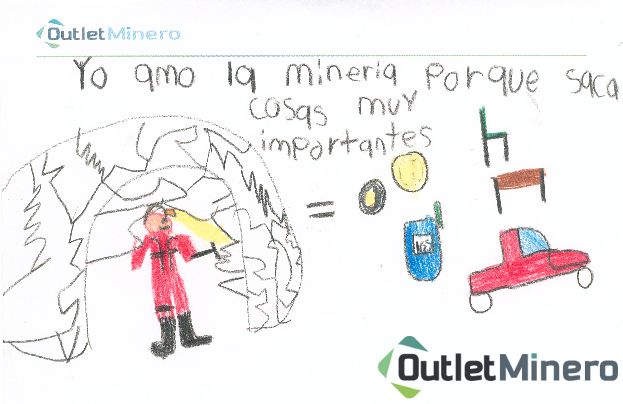 OutletMinero
Yo amo la minería porque saca
cosas muy
importantes
=
OutletMinero